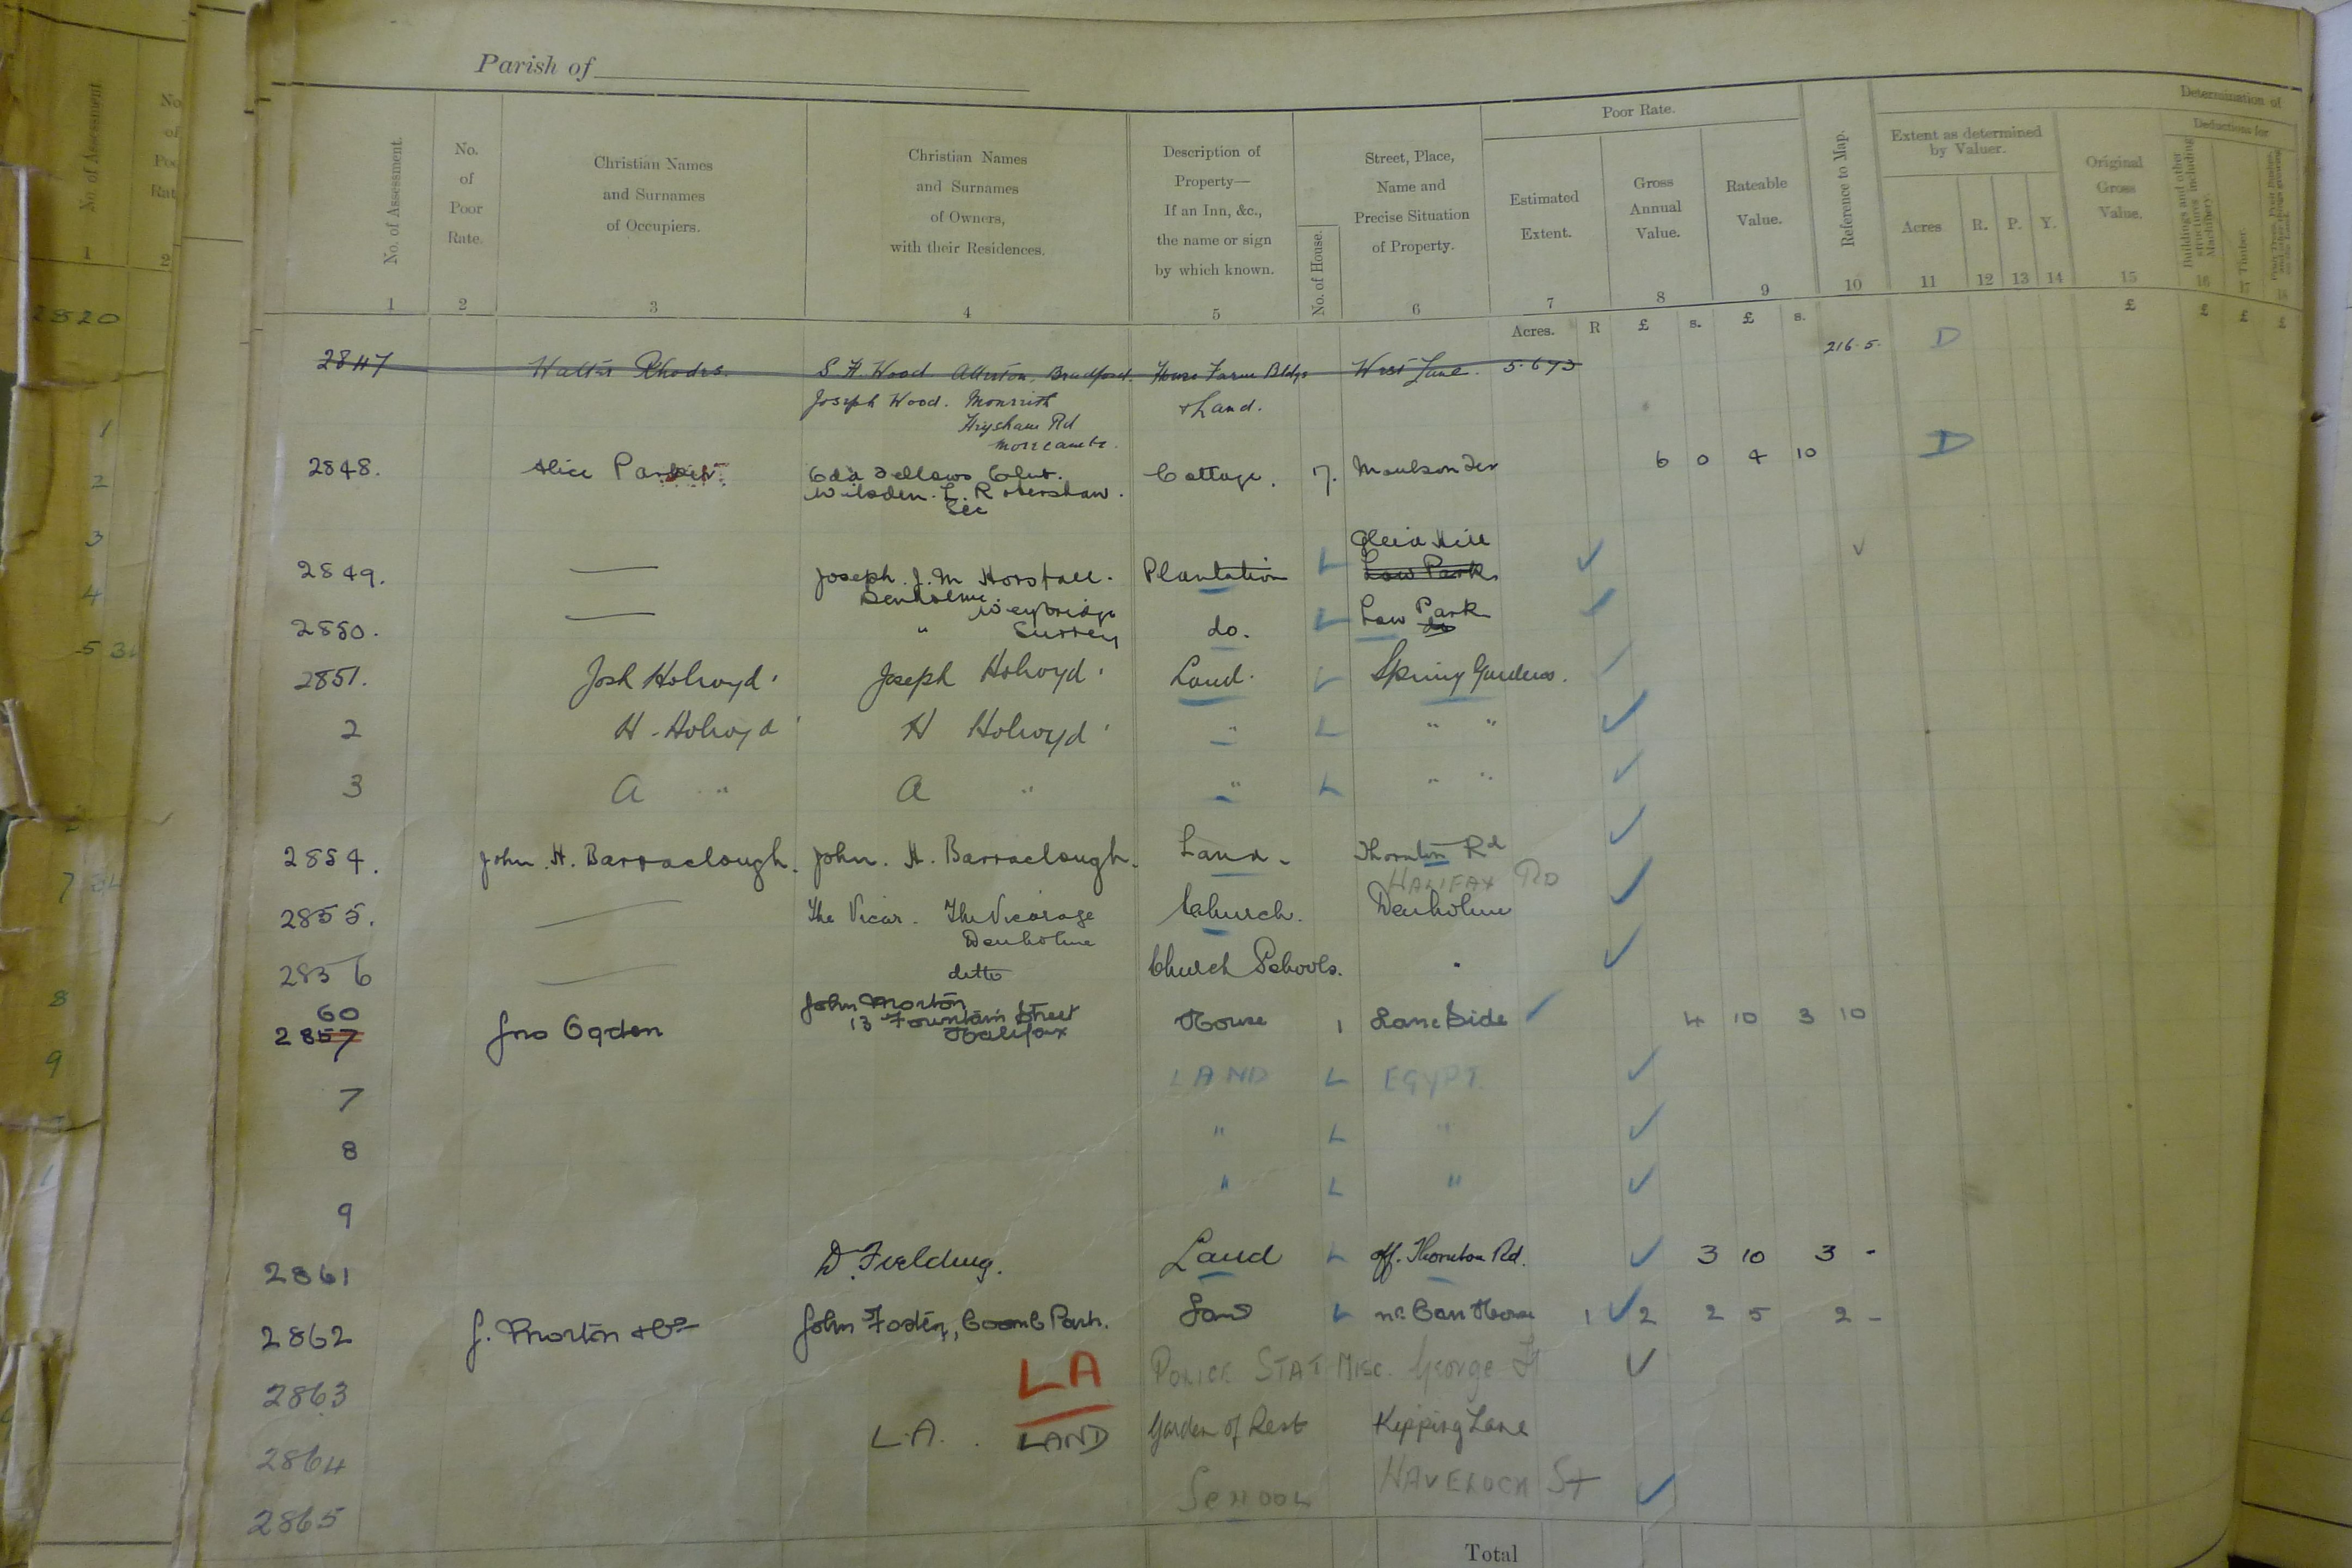 Parish of
Poor Rate.
Determination of
No. of Assessment.
No. of Poor Rate.
Christian Names and Surnames of Occupiers.
Christian Names and Surnames of Owners, with their Residences.
Description of Property— If an Inn, &c., the name or sign by which known.
No. of House.
Street, Place, Name and Precise Situation of Property.
Estimated Extent.
Gross Annual Value.
Rateable Value.
Reference to Map.
Extent as determined by Valuer.
Acres R. P. Y.
Original Gross Value.
Deductions for
Buildings and other structures including Machinery.
Timber.
1 2 3 4 5 6 7 8 9 10 11 12 13 14 15 16 17 18
Acres. R £ s. £ s. £ £ £ £
2847 Walter Rhodes. S H. Wood Allerton, Bradford. House Farm Bldgs West Lane. 5.673 216.5. D
Joseph Wood. & Land.
Heysham Rd
Morecambe.
2848. Alice Parker Odd Fellows Club. Cottage. 17. Moulson Ter 6 0 4 10 D
Wilsden. L. Robershaw.
Sec
2849. — Joseph. J. M Horsfall. Plantation L Low Park
Denholme.
Weybridge
2850. — " Surrey do. L Low Park
2851. Josh Holroyd Joseph Holroyd Land. L Spring Gardens.
2 H. Holroyd H Holroyd " L " "
3 A " A " " L " "
2854. John. H. Barraclough. John. H. Barraclough. Land. Thornton Rd
HALIFAX RD
2855. — The Vicar. The Vicarage Church. Denholme
Denholme
2856 — ditto Church Schools. "
60
2857 Jno Ogden John Morton House 1 Lane Side 4 10 3 10
13 Fountain Street
Halifax
7 LAND L EGYPT.
8 " L "
9 " L "
2861 D. Fielding. Land L off. Thornton Rd. 3 10 3 -
2862 J. Morton & Co John Foster, Coomb Park. Land L nr. Barr House 1 2 2 5 2 -
2863 LA POLICE STAT MISC. George St
2864 L.A. LAND Garden of Rest Kipping Lane
2865 SCHOOL HAVELOCK St
Total